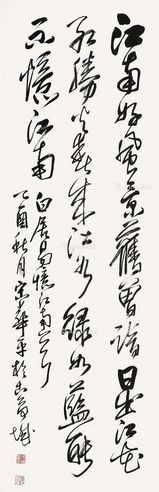 江南好风景旧曾谙日出江花
红胜火春来江水绿如蓝能
不忆江南
白居易忆江南一首
乙酉秋月宋华平於